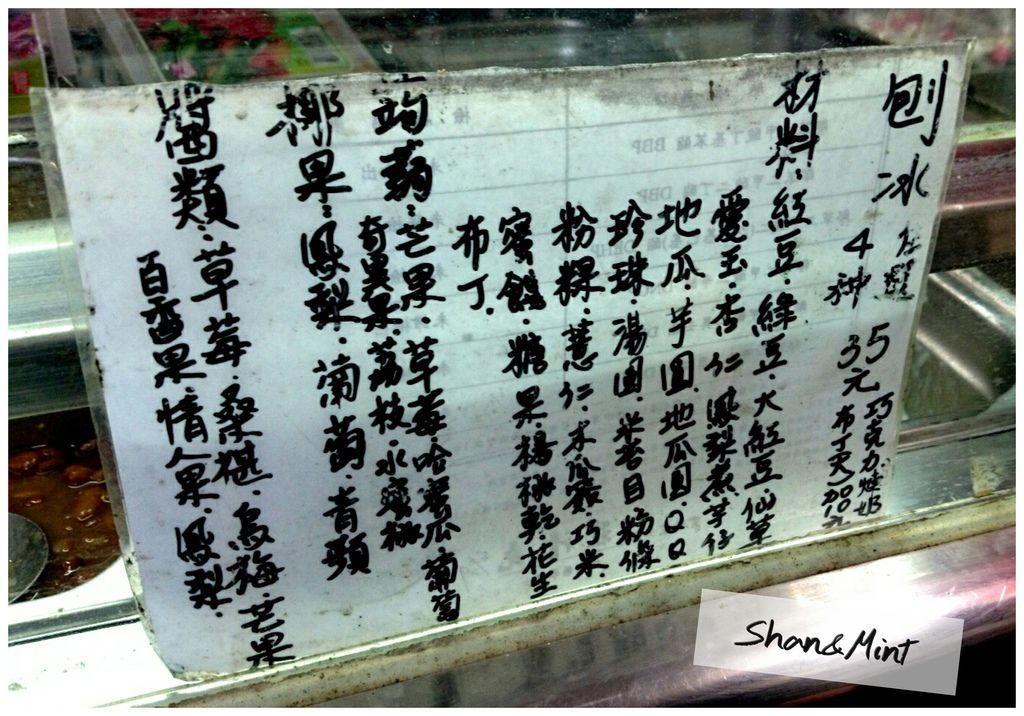 刨冰
任選
4種 35元
巧克力煉奶
布丁另加10元
材料:紅豆.綠豆.大紅豆仙草
愛玉.杏仁.鳳梨.煮芋仔
地瓜.芋圓.地瓜圓.QQ
珍珠.湯圓.米苔目.粉條
粉粿.薏仁.木瓜籤.巧米.
蜜餞.糖果.楊桃乾.花生
布丁.
蒟蒻:芒果.草莓.哈蜜瓜.葡萄
奇異果.荔枝.水蜜桃
椰果:鳳梨.葡萄.青蘋
醬類:草莓.桑椹.烏梅.芒果
百香果.情人果.鳳梨.
Shan&Mint